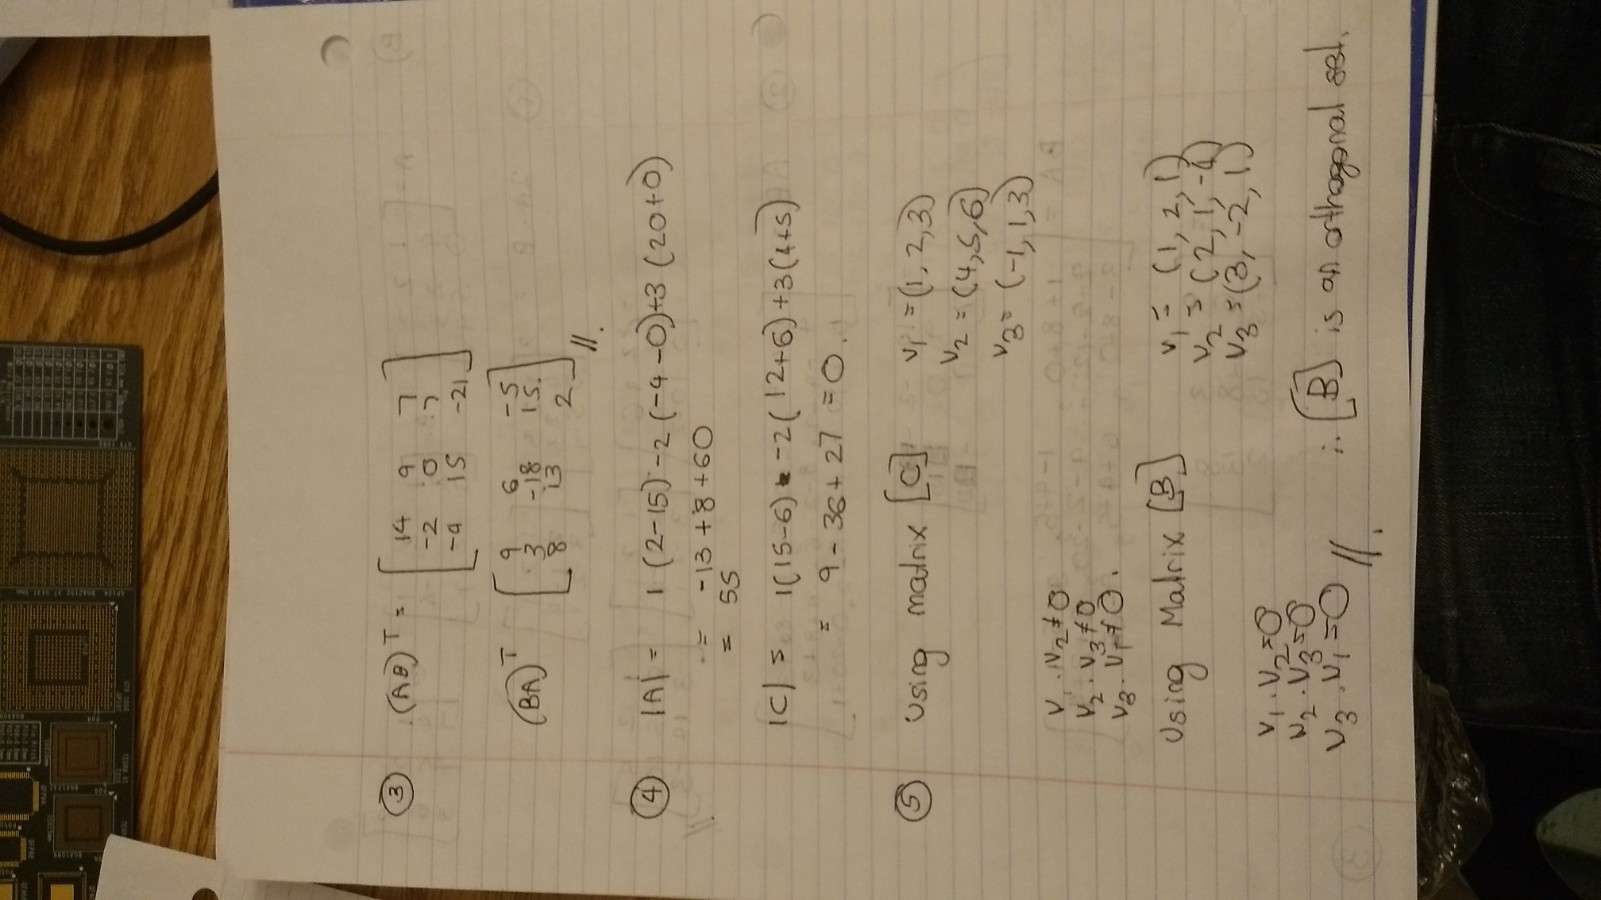 ③ (AB)ᵀ = [ 14 9 7
-2 0 7
-4 15 -21 ]
(BA)ᵀ [ 9 6 -5
3 -18 15.
8 13 2 ] //.
④ |A| = 1(2-15)-2(-4-0)+3(20+0)
= -13+8+60
= 55
|C| = 1(15-6) -2(12+6)+3(4+5)
= 9-36+27 = 0.
⑤ Using matrix [C] V₁ = (1, 2, 3)
V₂ = (4, 5, 6)
V₃ = (-1, 1, 3)
V₁ . V₂ ≠ 0
V₂ . V₃ ≠ 0
V₃ . V₁ ≠ 0.
Using Matrix [B] V₁ = (1, 2, 1)
V₂ = (2, 1, -4)
V₃ = (3, -2, 1)
V₁ . V₂ = 0
V₂ . V₃ = 0
V₃ . V₁ = 0 //. ∴ [B] is an orthogonal set.